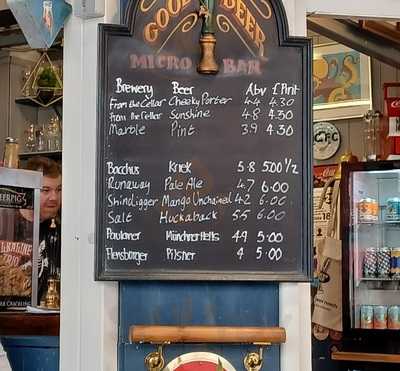 GOOD BEER
MICRO BAR
Brewery Beer Abv £ Pint
From the Cellar Cheeky Porter 4.4 4.30
From the Cellar Sunshine 4.8 4.30
Marble Pint 3.9 4.30
Bacchus Kriek 5.8 5.00 1/2
Runaway Pale Ale 4.7 6.00
Shindigger Mango Unchained 4.2 6.00
Salt Huckaback 5.5 6.00
Paulaner Münchner Hells 4.9 5.00
Flensburger Pilsner 4 5.00